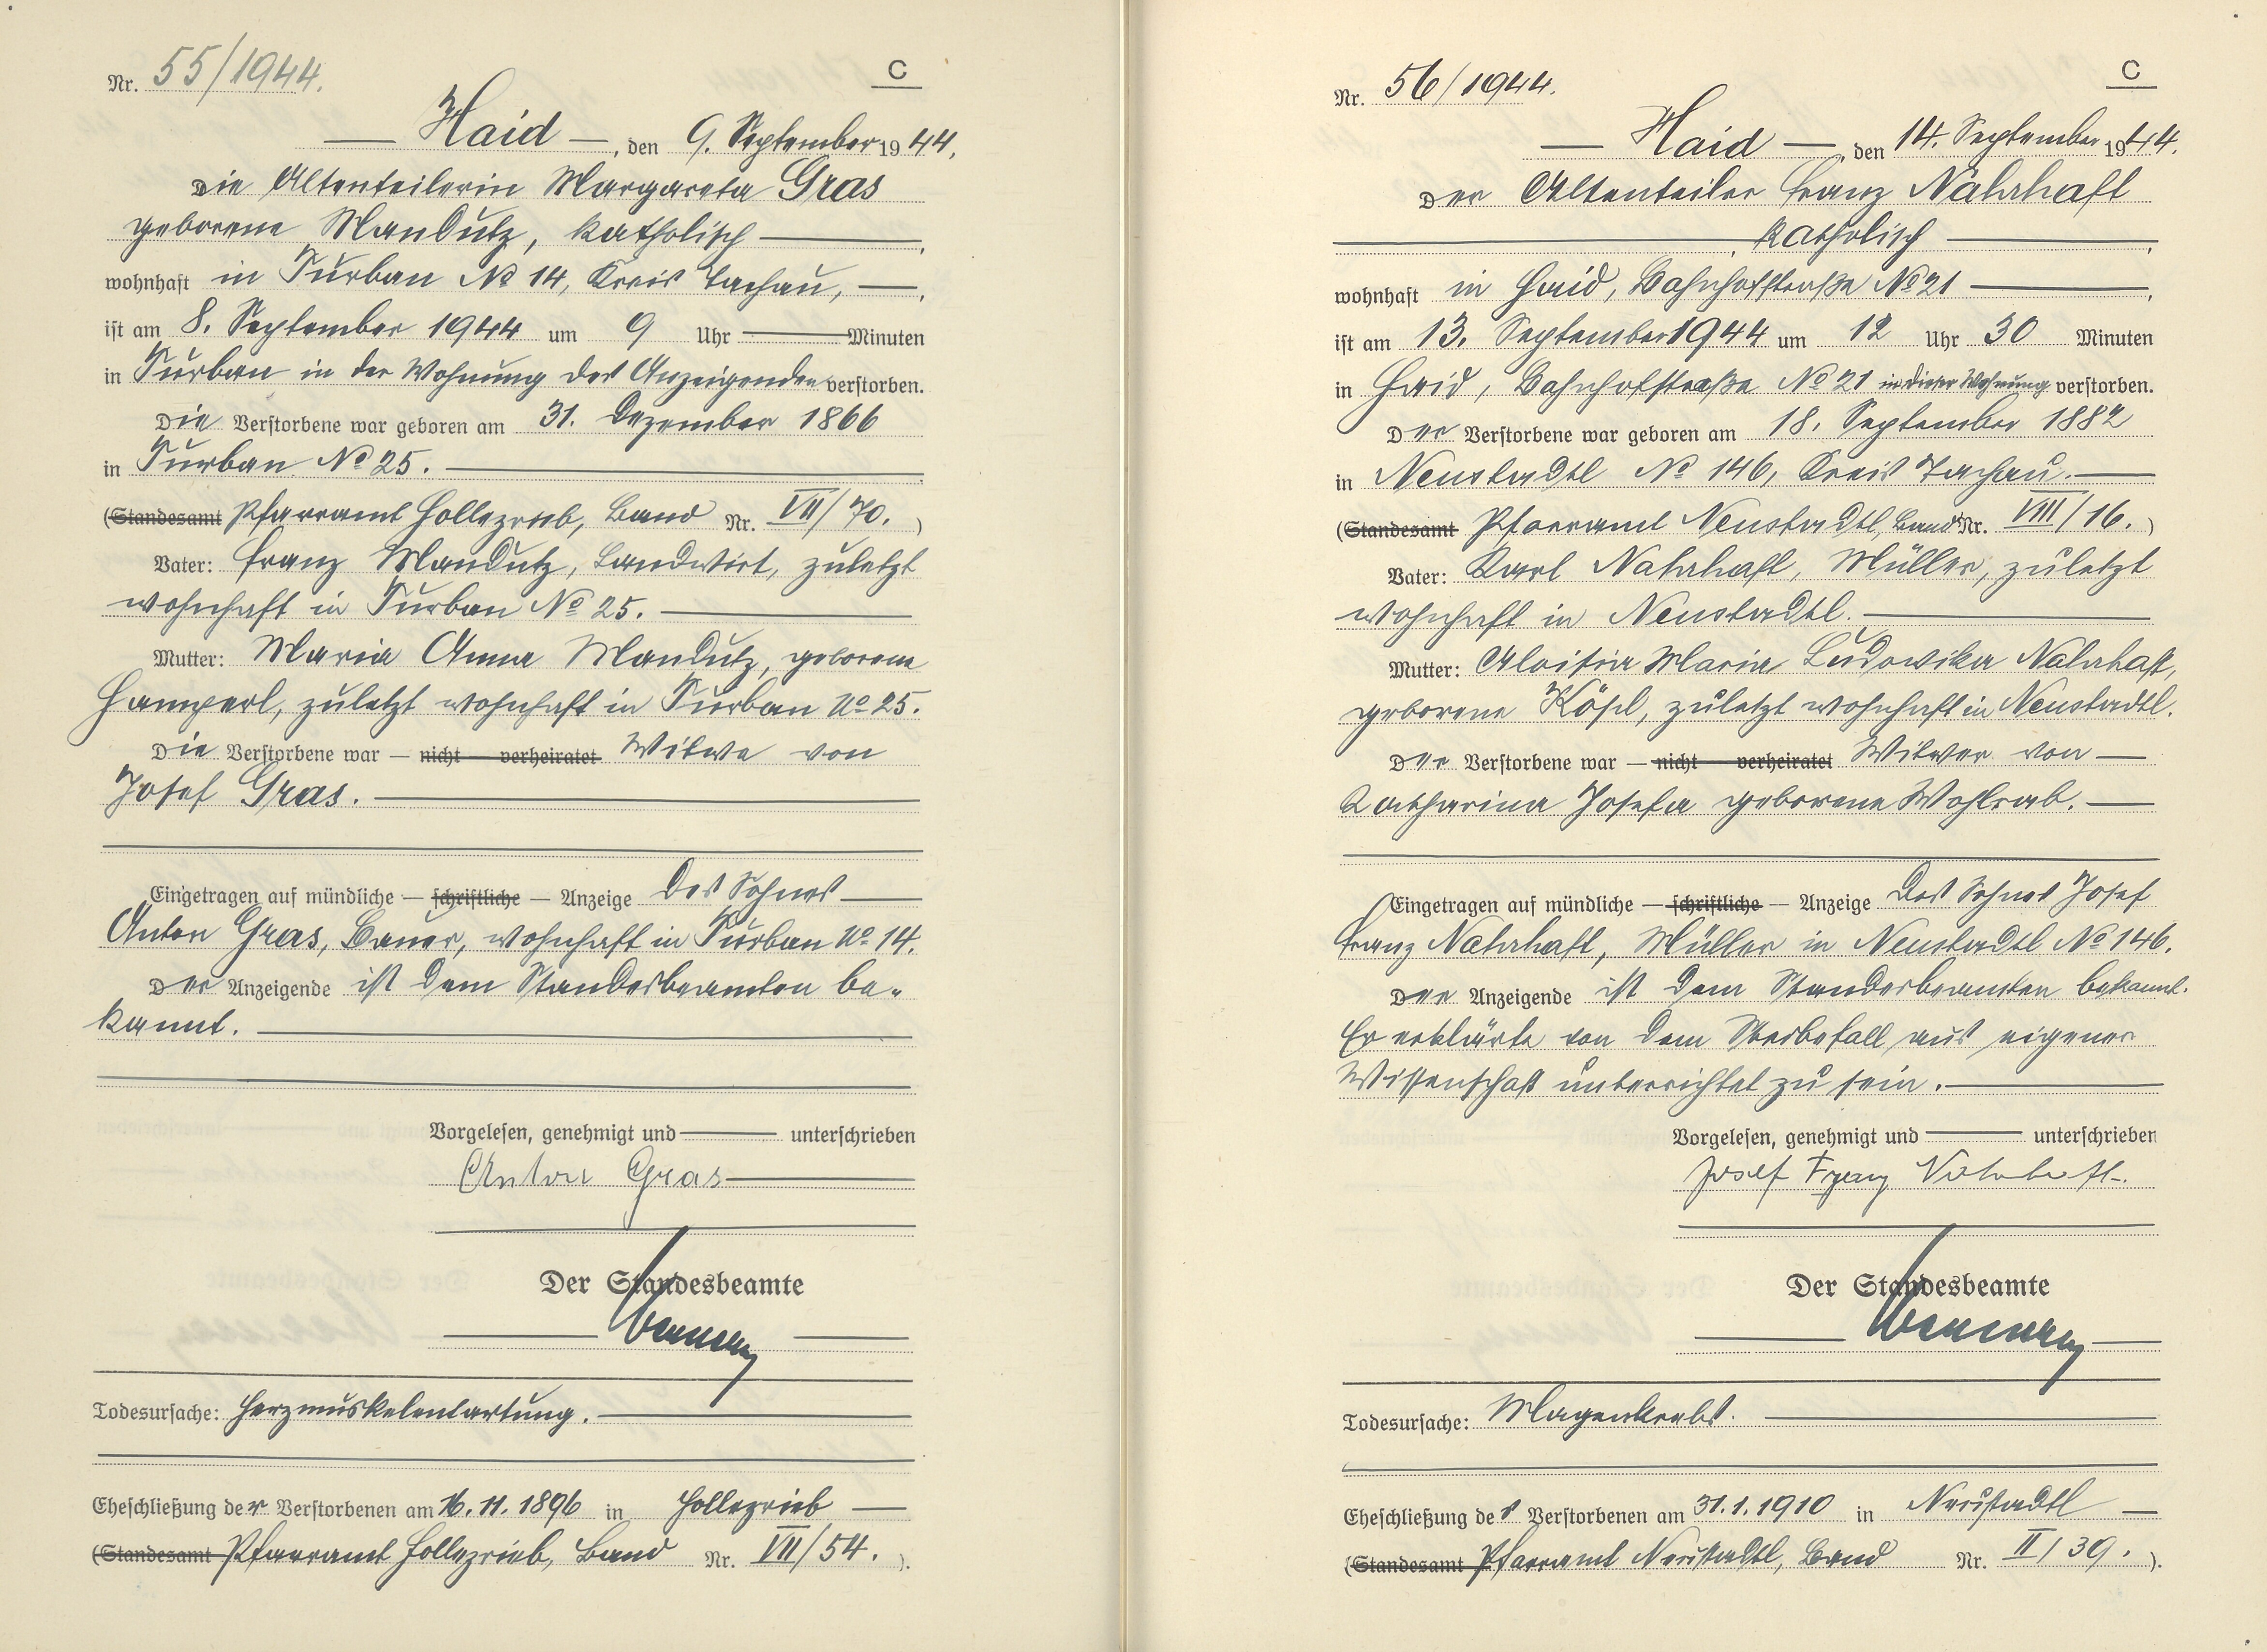 Nr. 55/1944.
C
Haid, den 9. September 1944.
Die Altenteilerin Margareta Gras
geborene Mandutz, katholisch,
wohnhaft in Turban No 14, Kreis Tachau,
ist am 8. September 1944 um 9 Uhr Minuten
in Turban in der Wohnung des Anzeigenden verstorben.
Die Verstorbene war geboren am 31. Dezember 1866
in Turban No 25.
(Standesamt Pfarramt Hollezrieb, Band Nr. VII/70.)
Vater: Franz Mandutz, Landwirt, zuletzt
wohnhaft in Turban No 25.
Mutter: Maria Anna Mandutz, geborene
Hamperl, zuletzt wohnhaft in Turban No 25.
Die Verstorbene war — nicht — verheiratet Witwe von
Josef Gras.
Eingetragen auf mündliche — schriftliche — Anzeige des Sohnes
Anton Gras, Bauer, wohnhaft in Turban No 14.
Der Anzeigende ist dem Standesbeamten be-
kannt.
Vorgelesen, genehmigt und unterschrieben
Anton Gras
Der Standesbeamte
Todesursache: Herzmuskelentartung.
Eheschließung der Verstorbenen am 16.11.1896 in Hollezrieb
(Standesamt Pfarramt Hollezrieb, Band Nr. VII/54.).
Nr. 56/1944.
C
Haid, den 14. September 1944.
Der Altenteiler Franz Nahrhaft
katholisch,
wohnhaft in Haid, Bahnhofstraße No 21,
ist am 13. September 1944 um 12 Uhr 30 Minuten
in Haid, Bahnhofstraße No 21 in dieser Wohnung verstorben.
Der Verstorbene war geboren am 18. September 1882
in Neustadtl No 146, Kreis Tachau.
(Standesamt Pfarramt Neustadtl, Band Nr. VIII/16.)
Vater: Karl Nahrhaft, Müller, zuletzt
wohnhaft in Neustadtl.
Mutter: Aloisia Maria Ludowika Nahrhaft,
geborene Kösl, zuletzt wohnhaft in Neustadtl.
Der Verstorbene war — nicht — verheiratet Witwer von
Katharina Josefa geborene Wohlrab.
Eingetragen auf mündliche — schriftliche — Anzeige des Sohnes Josef
Franz Nahrhaft, Müller in Neustadtl No 146.
Der Anzeigende ist dem Standesbeamten bekannt.
Er erklärte von dem Sterbefall aus eigener
Wissenschaft unterrichtet zu sein.
Vorgelesen, genehmigt und unterschrieben
Josef Franz Nahrhaft.
Der Standesbeamte
Todesursache: Magenkrebs.
Eheschließung des Verstorbenen am 31.1.1910 in Neustadtl
(Standesamt Pfarramt Neustadtl, Band Nr. II/39.).